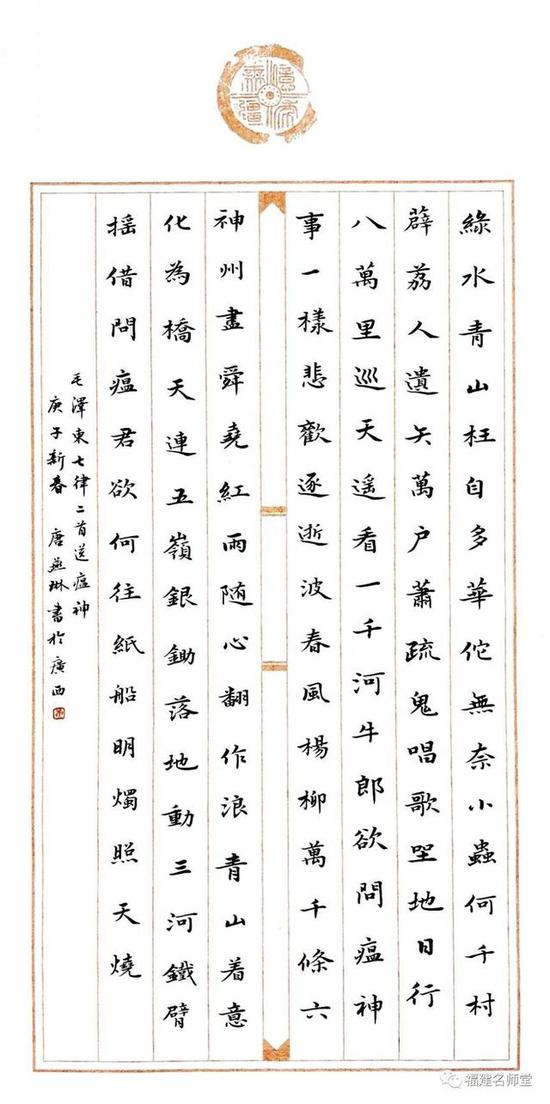 綠水青山枉自多華佗無奈小蟲何千村
薜荔人遺矢萬户蕭疏鬼唱歌坐地日行
八萬里巡天遥看一千河牛郎欲問瘟神
事一樣悲歡逐逝波春風楊柳萬千條六
神州盡舜堯紅雨随心翻作浪青山着意
化為橋天連五嶺銀鋤落地動三河鐵臂
摇借問瘟君欲何往紙船明燭照天燒
毛澤東七律二首送瘟神
庚子新春 唐燕琳書於廣西
福建名师堂